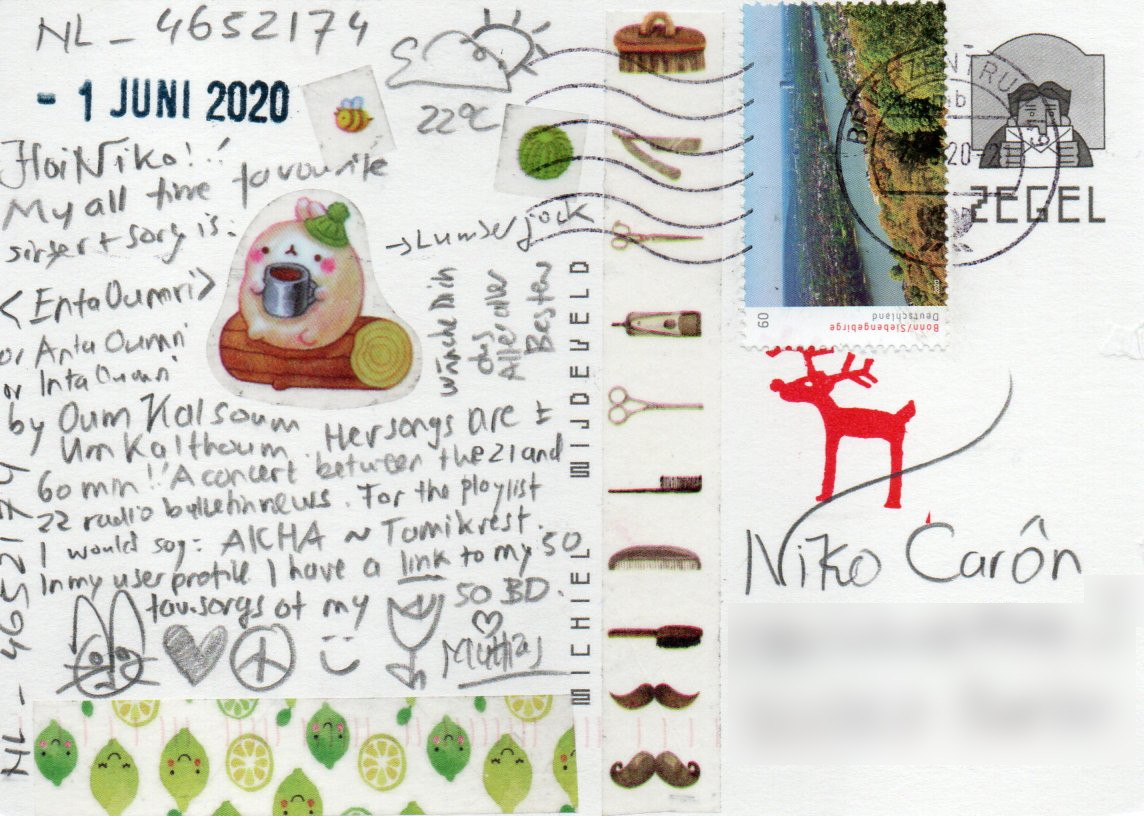 NL - 4652174
- 1 JUNI 2020
22°C
Hoi Niko!!
My all time favourite
singer + song is:
→ Lumberjack
<Enta Oumri>
or Anta Oumri
or Inta Oumri
by Oum Kalsoum
Um Kalthoum. Her songs are ±
60 min!! A concert between the 21 and
22 radio bulletin news. For the playlist
I would say: AICHA ~ Tamikrest.
In my user profile I have a link to my 50
fav. songs of my 50 BD.
wünsche Dir
das
Aller aller
Besten
NL - 4652174
MICHIEL WIJDEVELD
60
Bonn/Siebengebirge
Deutschland
BRIEFZENTRUM
ZEGEL
Niko Carôn